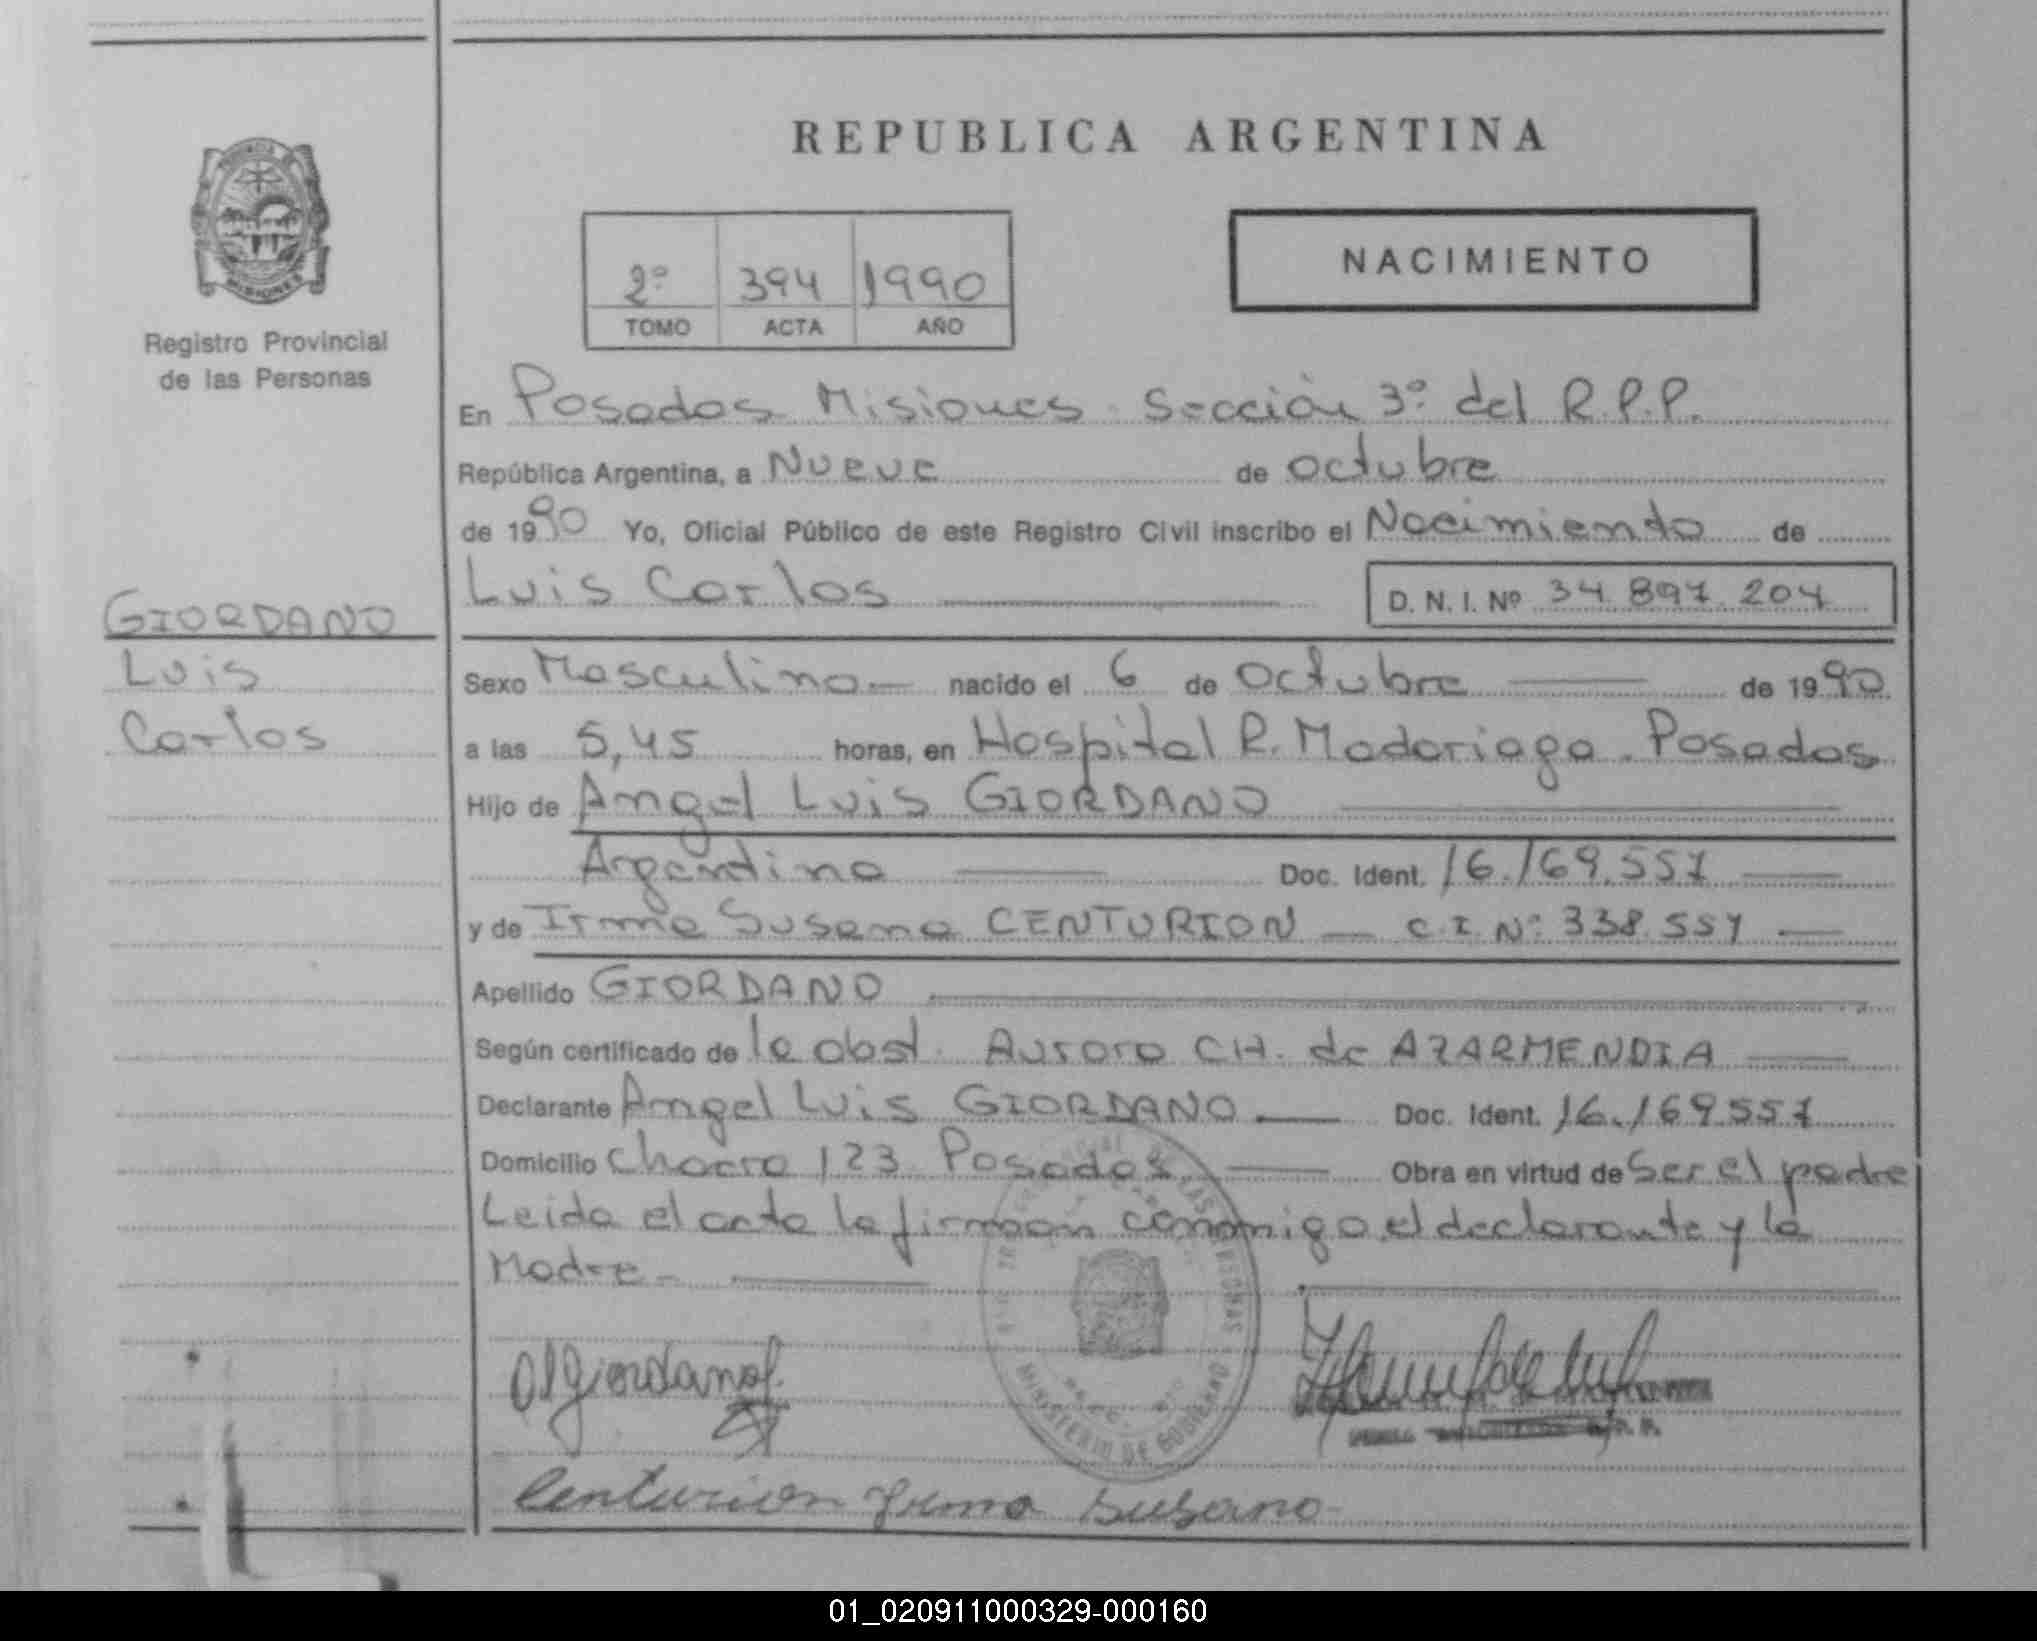 REPUBLICA ARGENTINA
NACIMIENTO
2º 394 1990
TOMO ACTA AÑO
PROVINCIA DE
MISIONES
Registro Provincial
de las Personas
En Posadas Misiones. Sección 3º del R.P.P.
República Argentina, a Nueve de octubre
de 1990 Yo, Oficial Público de este Registro Civil inscribo el Nacimiento de
Luis Carlos D. N. I. Nº 34.897.204
GIORDANO
Luis
Carlos
Sexo Masculino nacido el 6 de Octubre de 1990
a las 5,45 horas, en Hospital R. Madariaga. Posadas
Hijo de Angel Luis GIORDANO
Argentino Doc. Ident. 16.169.557
y de Irma Susana CENTURION C.I. Nº 338.557
Apellido GIORDANO
Según certificado de la obst. Aurora CH. de AZARMENDIA
Declarante Angel Luis GIORDANO Doc. Ident. 16.169557
Domicilio Chacra 123 Posadas Obra en virtud de Ser el padre
Leida el acta la firman conmigo el declarante y la
Madre
MINISTERIO DE GOBIERNO
Centurion Irma Susana
01_020911000329-000160